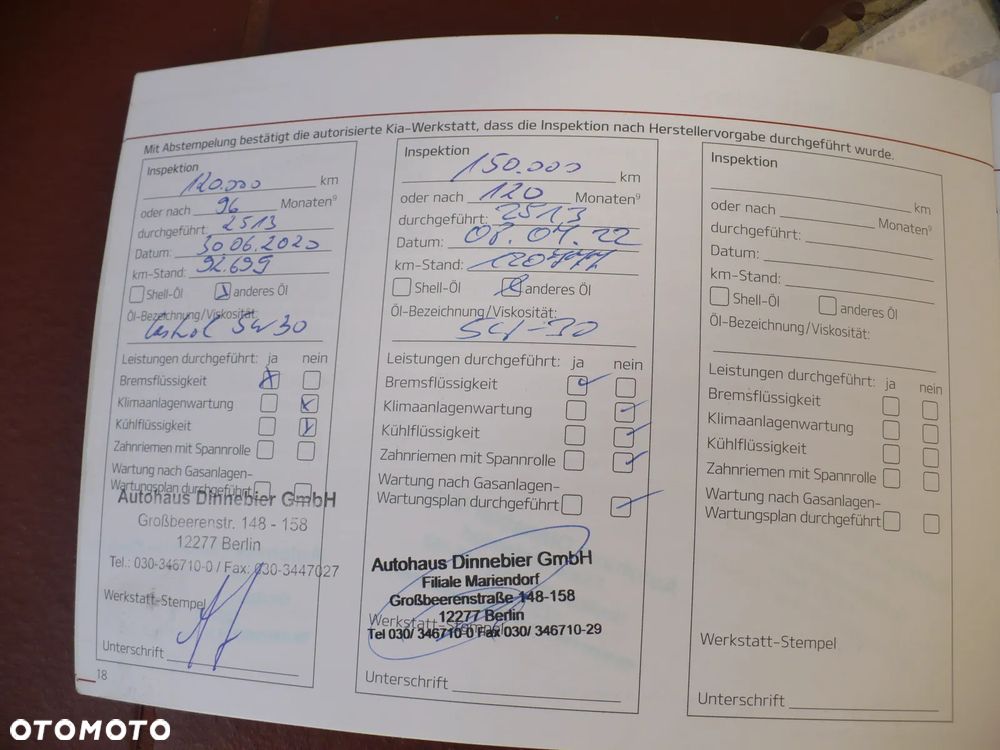 Mit Abstempelung bestätigt die autorisierte Kia-Werkstatt, dass die Inspektion nach Herstellervorgabe durchgeführt wurde.
Inspektion
120.000 km
oder nach 96 Monaten⁹
durchgeführt: 2513
Datum: 30.06.2020
km-Stand: 92.699
Shell-Öl anderes Öl
Öl-Bezeichnung/Viskosität:
5W30
Leistungen durchgeführt: ja nein
Bremsflüssigkeit
Klimaanlagenwartung
Kühlflüssigkeit
Zahnriemen mit Spannrolle
Wartung nach Gasanlagen-
Wartungsplan durchgeführt
Autohaus Dinnebier GmbH
Großbeerenstr. 148 - 158
12277 Berlin
Tel.: 030-346710-0 / Fax: 030-3447027
Werkstatt-Stempel
Unterschrift
18
Inspektion
150.000 km
oder nach 120 Monaten⁹
durchgeführt: 2513
Datum: 08.04.22
km-Stand: 120777
Shell-Öl anderes Öl
Öl-Bezeichnung/Viskosität:
5W-30
Leistungen durchgeführt: ja nein
Bremsflüssigkeit
Klimaanlagenwartung
Kühlflüssigkeit
Zahnriemen mit Spannrolle
Wartung nach Gasanlagen-
Wartungsplan durchgeführt
Autohaus Dinnebier GmbH
Filiale Mariendorf
Großbeerenstraße 148-158
12277 Berlin
Werkstatt-Stempel
Tel 030/ 346710-0 Fax 030/ 346710-29
Unterschrift
Inspektion
km
oder nach Monaten⁹
durchgeführt:
Datum:
km-Stand:
Shell-Öl anderes Öl
Öl-Bezeichnung/Viskosität:
Leistungen durchgeführt: ja nein
Bremsflüssigkeit
Klimaanlagenwartung
Kühlflüssigkeit
Zahnriemen mit Spannrolle
Wartung nach Gasanlagen-
Wartungsplan durchgeführt
Werkstatt-Stempel
Unterschrift
OTOMOTO